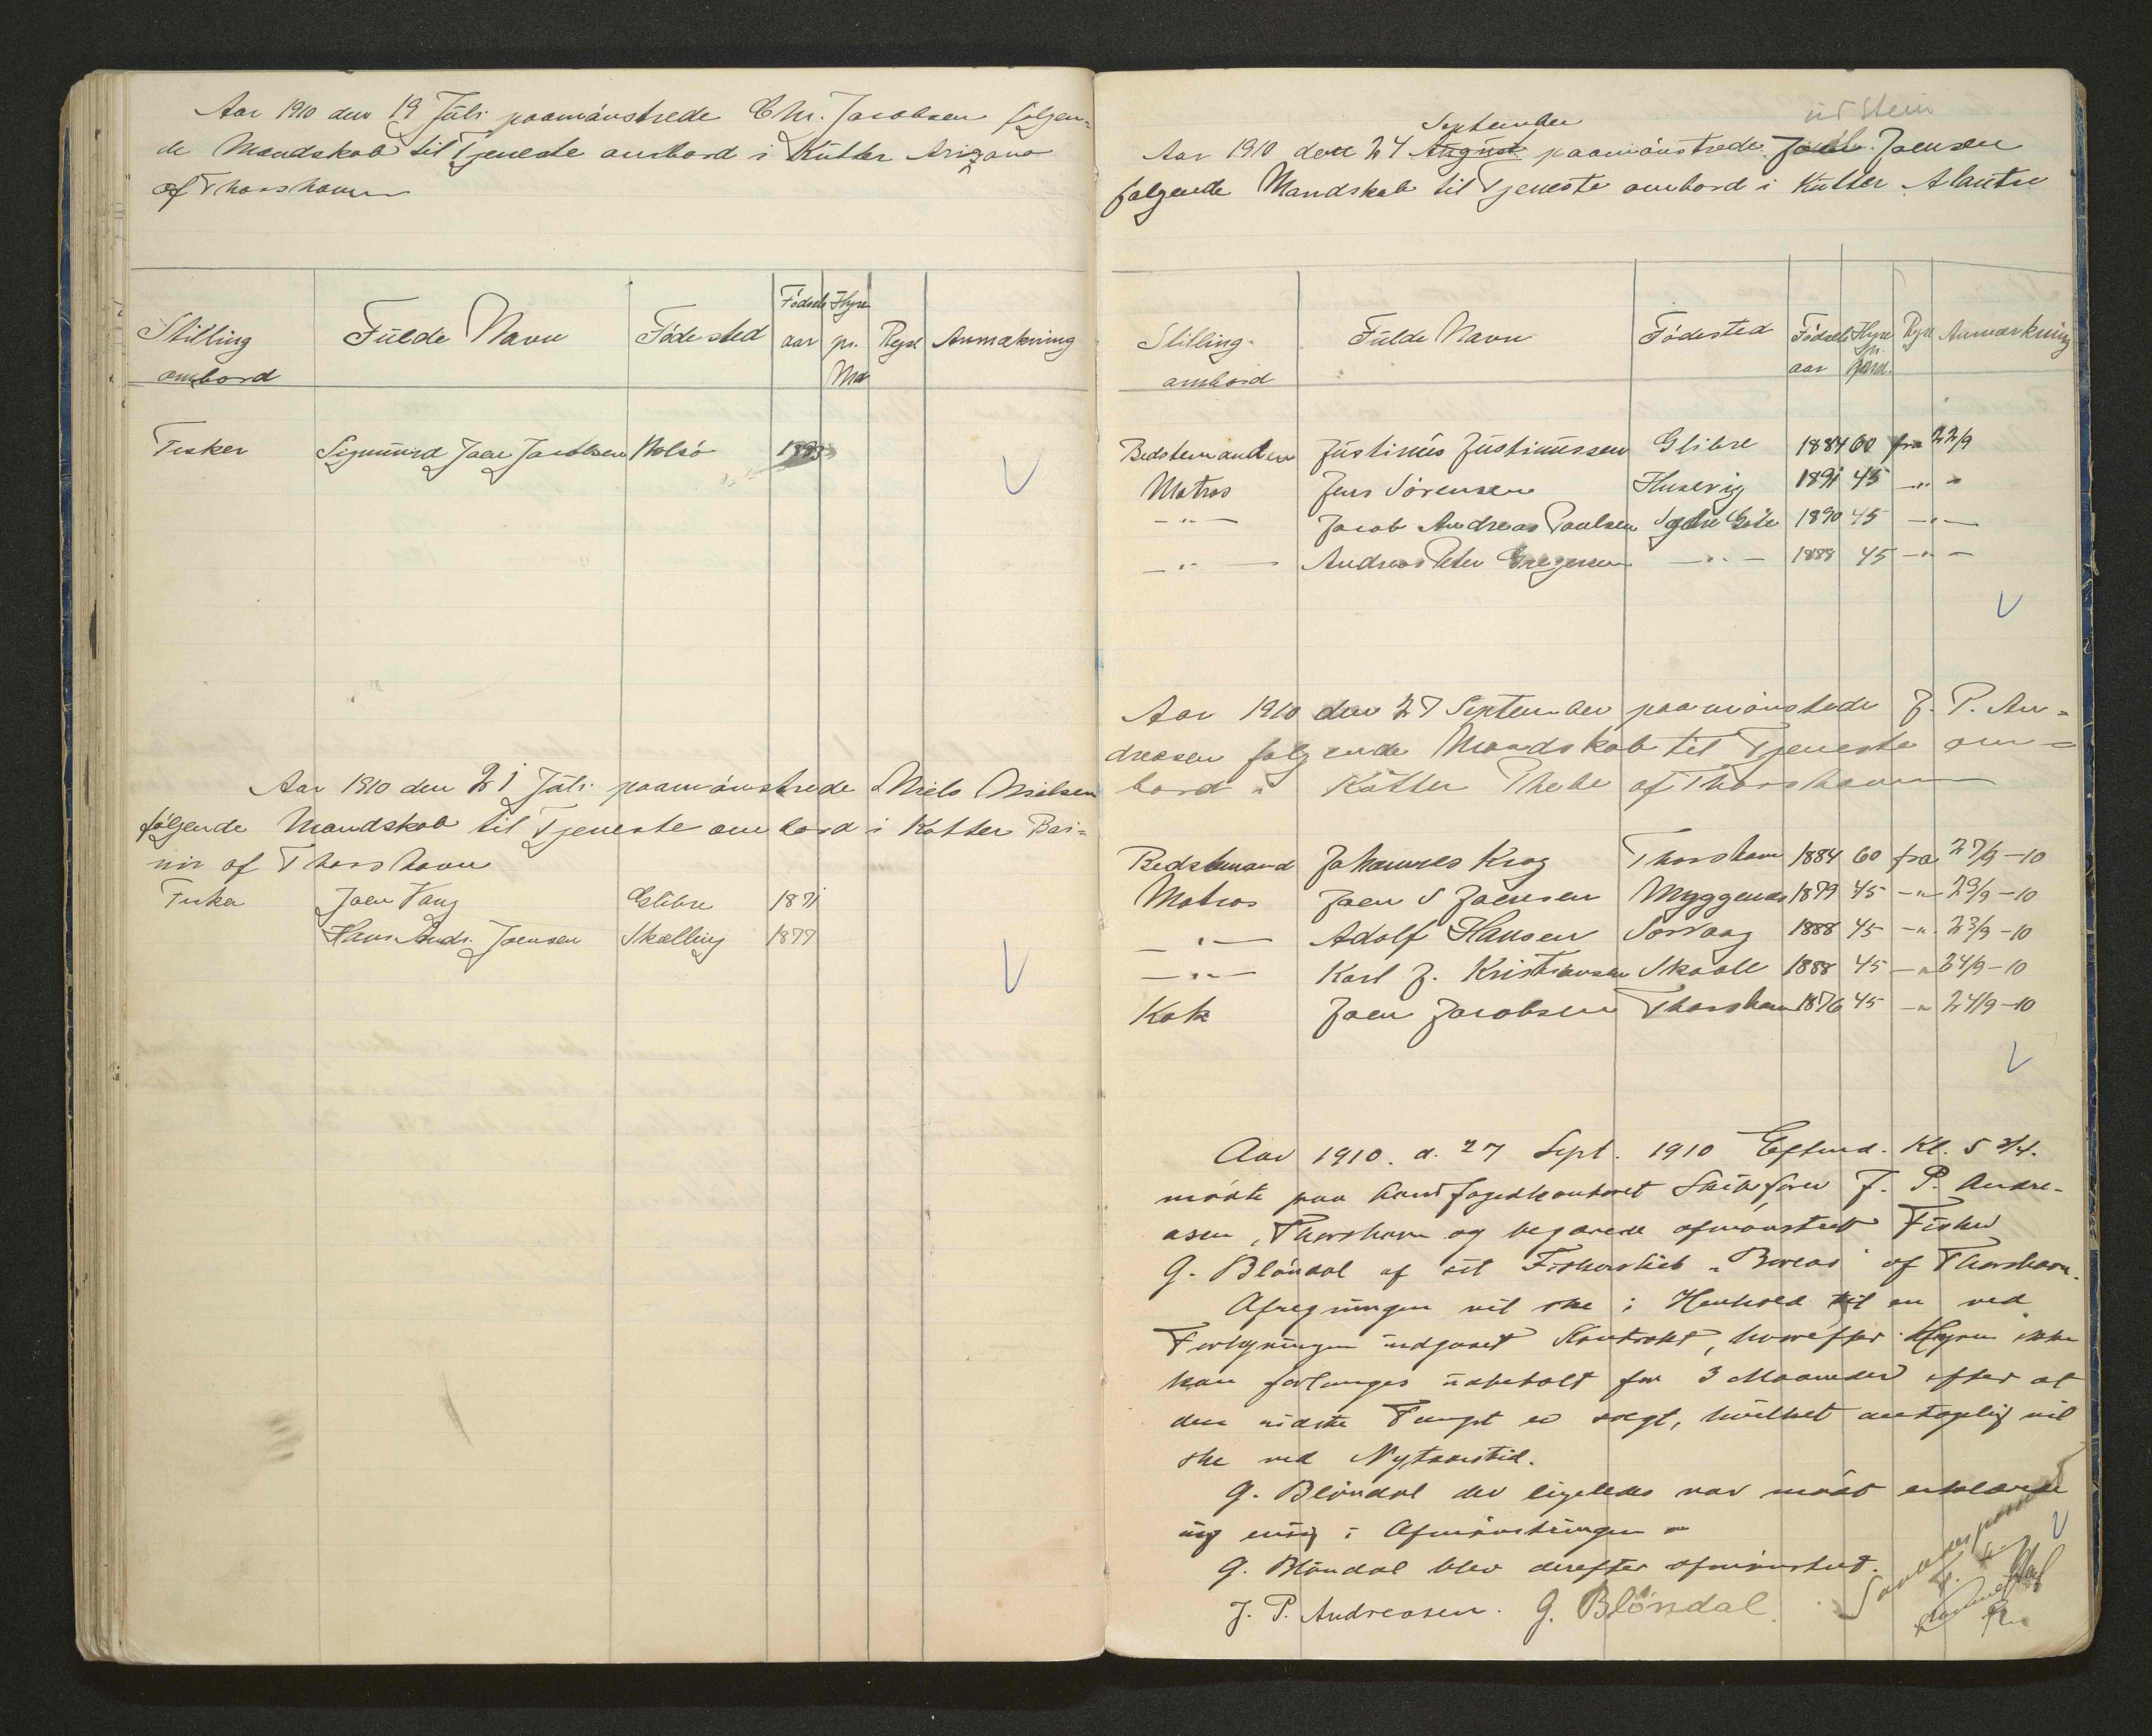 Aar 1910 den 19 Juli paamönstrede Chr. Jacobsen følgen=
de Mandskab til Tjeneste ombord i Kutter Arizona
af Thorshavn
Stilling ombord Fulde Navn Fødested Fødsels aar Hyre pr. Md Rejse Anmækning
Fisker Sigmund Joen Jacobsen Nolsö 1893
Aar 1910 den 21 Juli paamönstrede Niels Nielsen
følgende Mandskab til Tjeneste ombord i Kutter Bei=
nir af Thorshavn
Fisker Joen Vang Glibre 1871
Hans Andr. Joensen Skælling 1877
September
Aar 1910 den 24 August paamönstrede Joensen
følgende Mandskab til Tjeneste ombord i Kutter Atlanta
Stilling ombord Fulde Navn Fødested Fødsels aar Hyre pr. Maand. Rejse Anmærkning
Bedstemanden Justinus Justinussen Glibre 1884 60 fra 22/9
Matros Jens Sörensen Husevig 1891 45 -"-
-"- Jacob Andreas Poulsen Sydre Göte 1890 45 -"-
-"- Andreas Peter Gregersen -"- 1888 45 -"-
Aar 1910 den 27 September paamönstede J. P. An=
dreasen følgende Mandskab til Tjeneste om=
bord i Kutter Thebe af Thorshavn
Bedstemand Johannes Krog Thorshavn 1884 60 fra 27/9-10
Matros Joen S Joensen Myggenæs 1879 45 -"- 23/9-10
-"- Adolf Hansen Sörvaag 1888 45 -"- 23/9-10
-"- Karl J. Kristiansen Skaale 1888 45 -"- 24/9-10
Kok Joen Jacobsen Thorshavn 1876 45 -"- 24/9-10
Aar 1910. d. 27 Sept. 1910 Efterm. Kl. 5 3/4.
mödte paa Landfogedkontoret Skibsförer J. P. Andre-
asen, Thorshavn og begærede afmönstret Fisker
G. Blöndal af sit Fiskerskib "Boreas" af Thorshavn.
Afregningen vil ske i Henhold til en ved
Forhyringen indgaaet Kontrakt, hvorefter Hyren ikke
kan forlanges udbetalt før 3 Maaneder efter at
den sidste Fangst er solgt, hvilket antagelig vil
ske ved Nytaarstid.
G. Blöndal der ligeledes var mödt erklærede
sig enig i Afmönstringen
G. Blöndal blev derefter afmönstret.
J. P. Andreasen. G. Blöndal.